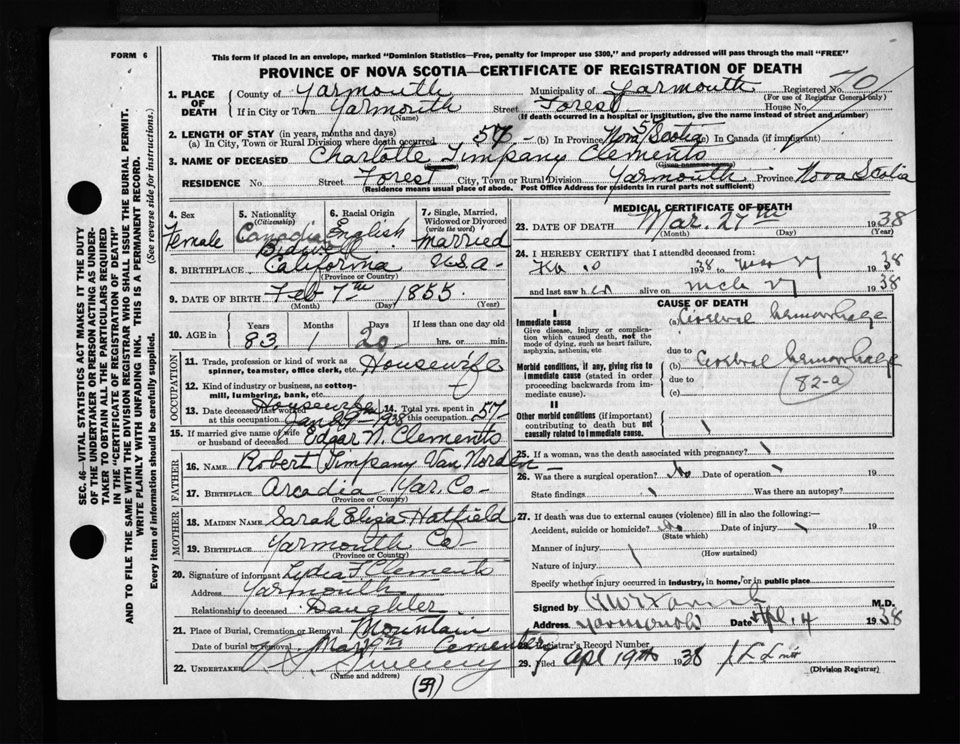 FORM 6
This form if placed in an envelope, marked "Dominion Statistics—Free, penalty for improper use $300," and properly addressed will pass through the mail "FREE"
PROVINCE OF NOVA SCOTIA—CERTIFICATE OF REGISTRATION OF DEATH
SEC. 46—VITAL STATISTICS ACT MAKES IT THE DUTY
OF THE UNDERTAKER OR PERSON ACTING AS UNDER-
TAKER TO OBTAIN ALL THE PARTICULARS REQUIRED
IN THE "CERTIFICATE OF REGISTRATION OF DEATH"
AND TO FILE THE SAME WITH THE DIVISION REGISTRAR WHO SHALL ISSUE THE BURIAL PERMIT.
WRITE PLAINLY WITH UNFADING INK. THIS IS A PERMANENT RECORD.
Every item of information should be carefully supplied. (See reverse side for instructions.)
1. PLACE OF DEATH County of Yarmouth Municipality of Yarmouth Registered No. 70
(For use of Registrar General only)
If in City or Town Yarmouth Street Forest House No.
(Name) (If death occurred in a hospital or institution, give the name instead of street and number)
2. LENGTH OF STAY (in years, months and days)
(a) In City, Town or Rural Division where death occurred 57 (b) In Province Nova Scotia 57 (c) In Canada (if an immigrant)
3. NAME OF DECEASED Charlotte Timpany Clements
RESIDENCE No. Street Forest City, Town or Rural Division Yarmouth Province Nova Scotia
(Residence means usual place of abode. Post Office Address for residents in rural parts not sufficient)
4. Sex Female
5. Nationality (Citizenship) Canadian
6. Racial Origin English
7. Single, Married, Widowed or Divorced (write the word) Married
8. BIRTHPLACE California U.S.A.
(Province or Country)
9. DATE OF BIRTH Feb 7th 1855
(Month) (Day) (Year)
10. AGE in Years 83 Months 1 Days 20 If less than one day old hrs. or min.
OCCUPATION
11. Trade, profession or kind of work as spinner, teamster, office clerk, etc. Housewife
12. Kind of industry or business, as cotton-mill, lumbering, bank, etc. Housewife
13. Date deceased last worked at this occupation 1938
14. Total yrs. spent in this occupation 57
15. If married give name of wife or husband of deceased Edgar N. Clements
FATHER
16. NAME Robert Timpany Van Norden
17. BIRTHPLACE Arcadia Yar. Co
(Province or Country)
MOTHER
18. MAIDEN NAME Sarah Eliza Hatfield
19. BIRTHPLACE Yarmouth Co
(Province or Country)
20. Signature of informant Lydia F. Clements
Address Yarmouth
Relationship to deceased Daughter
21. Place of Burial, Cremation or Removal Mountain Cemetery
Date of burial or removal Mar
22. UNDERTAKER Sweeny
(Name and address)
59
MEDICAL CERTIFICATE OF DEATH
23. DATE OF DEATH Mar. 27th 1938
(Month) (Day) (Year)
24. I HEREBY CERTIFY that I attended deceased from:
1938 to 1938
and last saw h er alive on mch 27 1938
CAUSE OF DEATH
I
Immediate cause
Give disease, injury or complication which caused death, not the mode of dying, such as heart failure, asphyxia, asthenia, etc
(a) Cerebral hemorrhage
due to
Morbid conditions, if any, giving rise to immediate cause (stated in order proceeding backwards from immediate cause).
(b) Cerebral hemorrhage
due to 82-a
(c)
II
Other morbid conditions (if important) contributing to death but not causally related to immediate cause.
25. If a woman, was the death associated with pregnancy?
26. Was there a surgical operation? No Date of operation 19
State findings Was there an autopsy?
27. If death was due to external causes (violence) fill in also the following:—
Accident, suicide or homicide? No Date of injury 19
(State which)
Manner of injury
(How sustained)
Nature of injury
Specify whether injury occurred in industry, in home, or in public place
Signed by M.D.
Address Yarmouth Date Apl. 4 1938
28. Registrar's Record Number
29. Filed Apl 19th 1938
(Division Registrar)